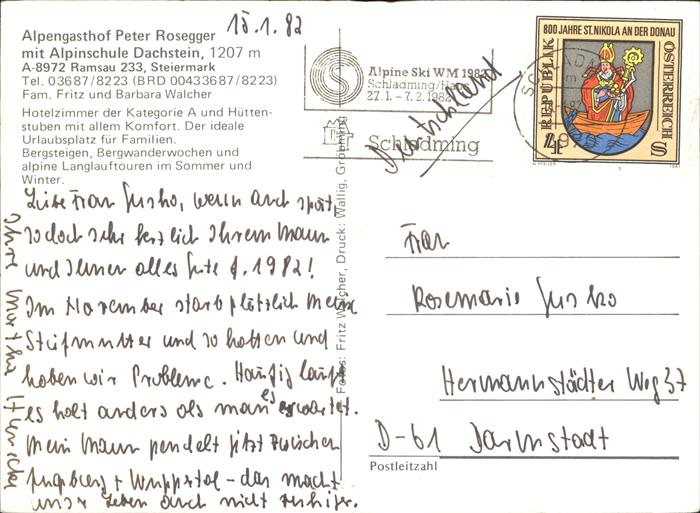 Alpengasthof Peter Rosegger
mit Alpinschule Dachstein, 1207 m
A-8972 Ramsau 233, Steiermark
Tel. 03687/8223 (BRD 00433687/8223)
Fam. Fritz und Barbara Walcher
Hotelzimmer der Kategorie A und Hütten-
stuben mit allem Komfort. Der ideale
Urlaubsplatz für Familien.
Bergsteigen, Bergwanderwochen und
alpine Langlauftouren im Sommer und
Winter.
15.1.82
Liebe Frau Gusko, wenn auch spät,
so doch sehr herzlich Ihrem Mann
und Ihnen alles Gute f. 1982!
Im November starb plötzlich meine
Stiefmutter und so hatten und
haben wir Probleme. Häufig läuft
es halt anders als man es erwartet.
Mein Mann pendelt jetzt zwischen
Augsburg + Wuppertal - das macht
unser Leben auch nicht ruhiger.
Ihre Martha
Fotos: Fritz Walcher, Druck: Wallig, Gröbming
Alpine Ski WM 1982
Schladming/Haus
27.1. – 7.2.1982
Schladming
Deutschland
800 JAHRE ST. NIKOLA AN DER DONAU
REPUBLIK
ÖSTERREICH
S 4
1981
Frau
Rosemarie Gusko
Hermannstädter Weg 37
D-61 Darmstadt
Postleitzahl